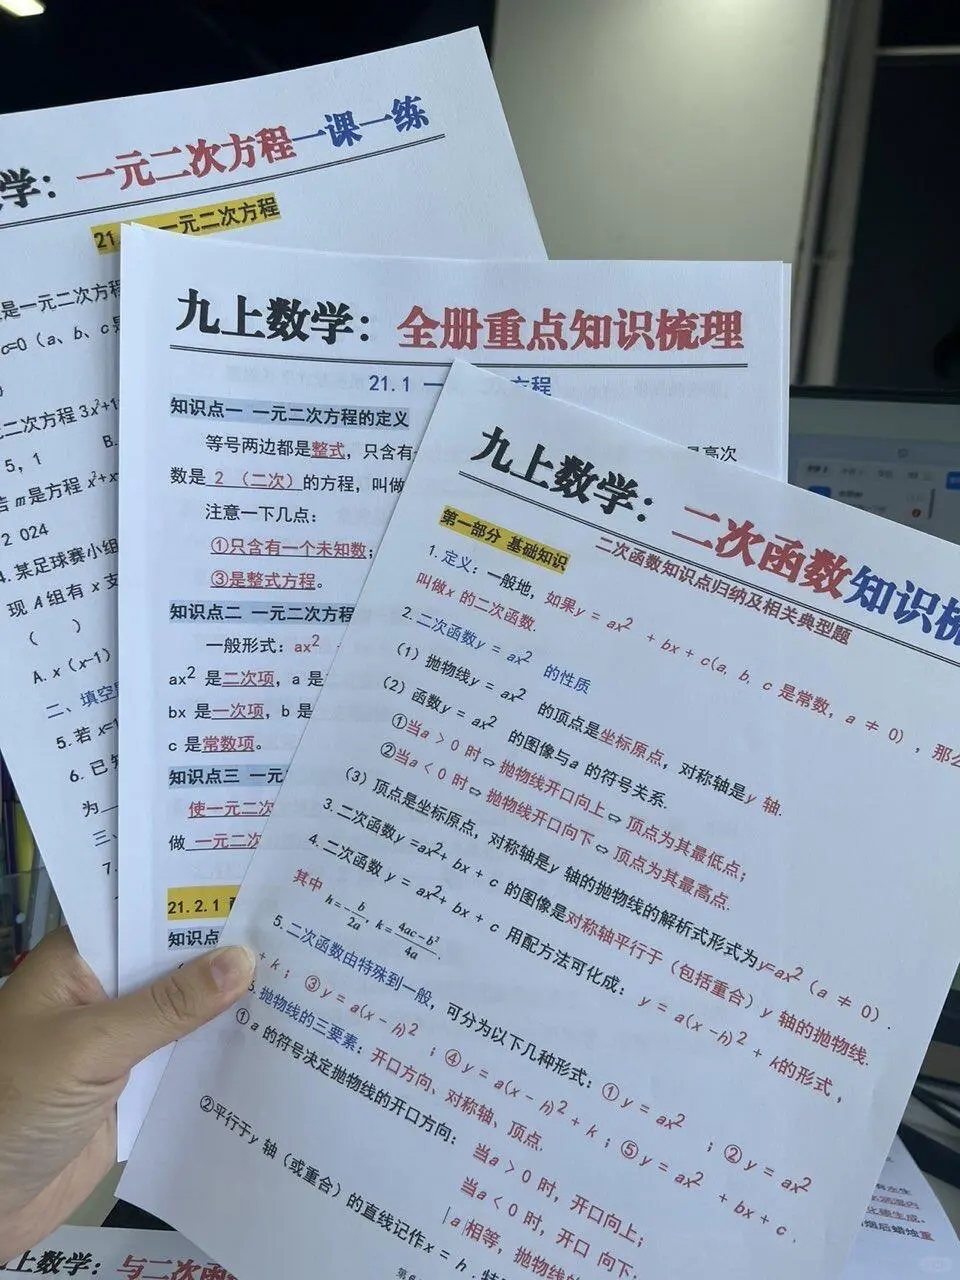 学：一元二次方程一课一练
21. 一元二次方程
是一元二次方程
c=0（a、b、c是
二次方程 3x²+1
5，1 B.
若 m 是方程 x²+x
2 024
4. 某足球赛小组
现 A 组有 x 支
（ ）
A. x（x-1）
二、填空
5. 若 x=1
6. 已知
为
三、
7.
九上数学：全册重点知识梳理
21.1 一 方程
知识点一 一元二次方程的定义
等号两边都是整式，只含有一 是高次
数是 2 （二次）的方程，叫做
注意一下几点：
①只含有一个未知数；
③是整式方程。
知识点二 一元二次方程
一般形式：ax²
ax² 是二次项，a 是
bx 是一次项，b 是
c 是常数项。
知识点三 一元
使一元二次
做 一元二次
21.2.1
知识点
九上数学：二次函数知识梳
二次函数知识点归纳及相关典型题
第一部分 基础知识
1. 定义：一般地，如果 y = ax² + bx + c(a, b, c 是常数，a ≠ 0)，那么
叫做 x 的二次函数.
2. 二次函数 y = ax² 的性质
（1）抛物线 y = ax² 的顶点是坐标原点，对称轴是 y 轴.
（2）函数 y = ax² 的图像与 a 的符号关系.
①当 a > 0 时⇔抛物线开口向上⇔顶点为其最低点；
②当 a < 0 时⇔抛物线开口向下⇔顶点为其最高点.
（3）顶点是坐标原点，对称轴是 y 轴的抛物线的解析式形式为 y=ax²（a ≠ 0）.
3. 二次函数 y =ax²+ bx + c 的图像是对称轴平行于（包括重合）y 轴的抛物线.
4. 二次函数 y = ax²+ bx + c 用配方法可化成：y = a(x − h)² + k 的形式，
其中 h = − b/2a, k = 4ac − b²/4a.
5. 二次函数由特殊到一般，可分为以下几种形式：① y = ax²；② y = ax²
+ k；③ y = a(x − h)²；④ y = a(x − h)² + k；⑤ y = ax² + bx + c.
6. 抛物线的三要素：开口方向、对称轴、顶点.
① a 的符号决定抛物线的开口方向：当 a > 0 时，开口向上；
当 a < 0 时，开口 向下；
| a |相等，抛物线的
②平行于 y 轴（或重合）的直线记作 x = h.
上数学：与二次函